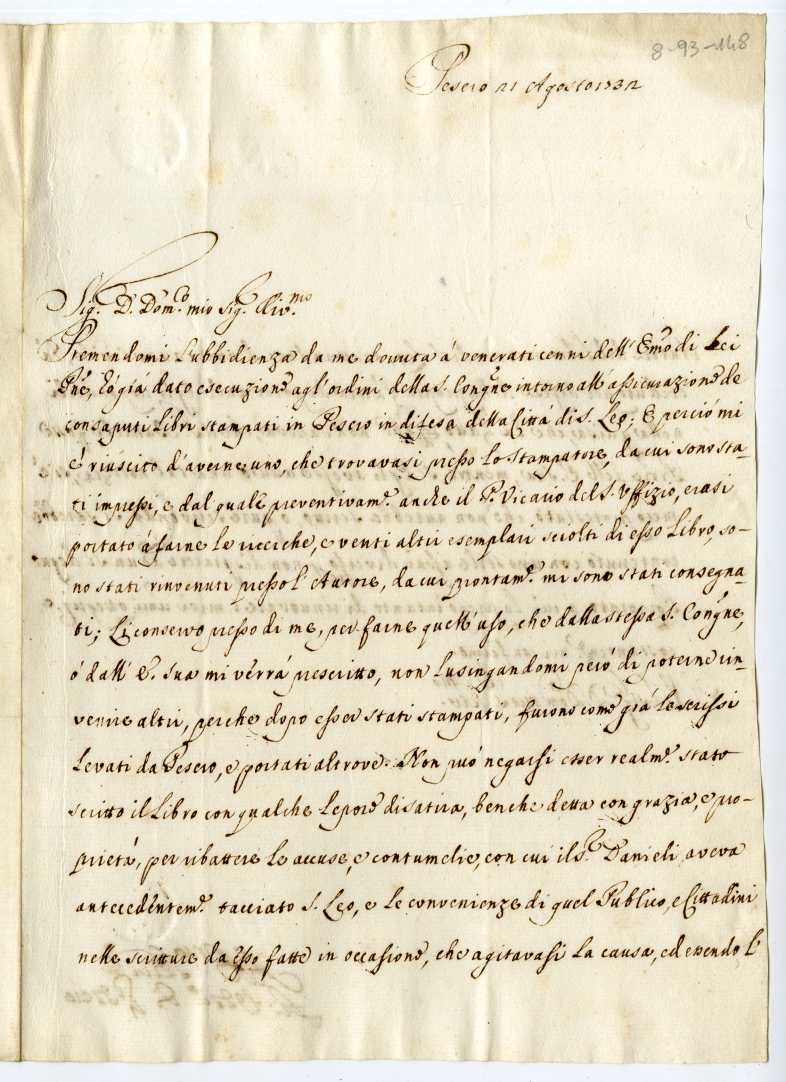 8-93-148
Pesero 21 Agosto 1732
Sig.r D. Dom.co mio Sig.r Riv.mo
Premendomi l'ubbidienza da me dovuta á venerati cenni dell'Emo di Lei
Pne, hó giá dato esecuzione agl'ordini della S. Congne intorno all'assicurazione de
consaputi Libri stampati in Pesero in difesa della Cittá di S. Leo; E perció mi
é riuscito d'averne uno, che trovavasi presso lo stampatore, da cui sono sta-
ti impressi, e dal quale preventivam.e anche il P. Vicario del S. Uffizio, erasi
portato á farne le ricerche, e venti altri esemplari sciolti di esso Libro, so-
no stati rinvenuti presso l'Autore, da cui prontam.e mi sono stati consegna-
ti; Li conservo presso di me, per farne quell'uso, che dalla stessa S. Congne,
ó dall'E. Sua mi verrá prescritto, non lusingandomi peró di poterne rin-
venire altri, perche dopo esser stati stampati, furono come giá le scrissi
levati da Pesero, e portati altrove. Non puó negarsi esser realm.e stato
scritto il Libro con qualche lepore di satira, benche detta con grazia, e pro-
prietá, per ribattere le accuse, e contumelie, con cui il S.r Danieli aveva
antecedentem.e tacciato S. Leo, e le convenienze di quel Publico, e Cittadini
nelle scritture da esso fatte in occasione, che agitavasi la causa, ed essendo l'